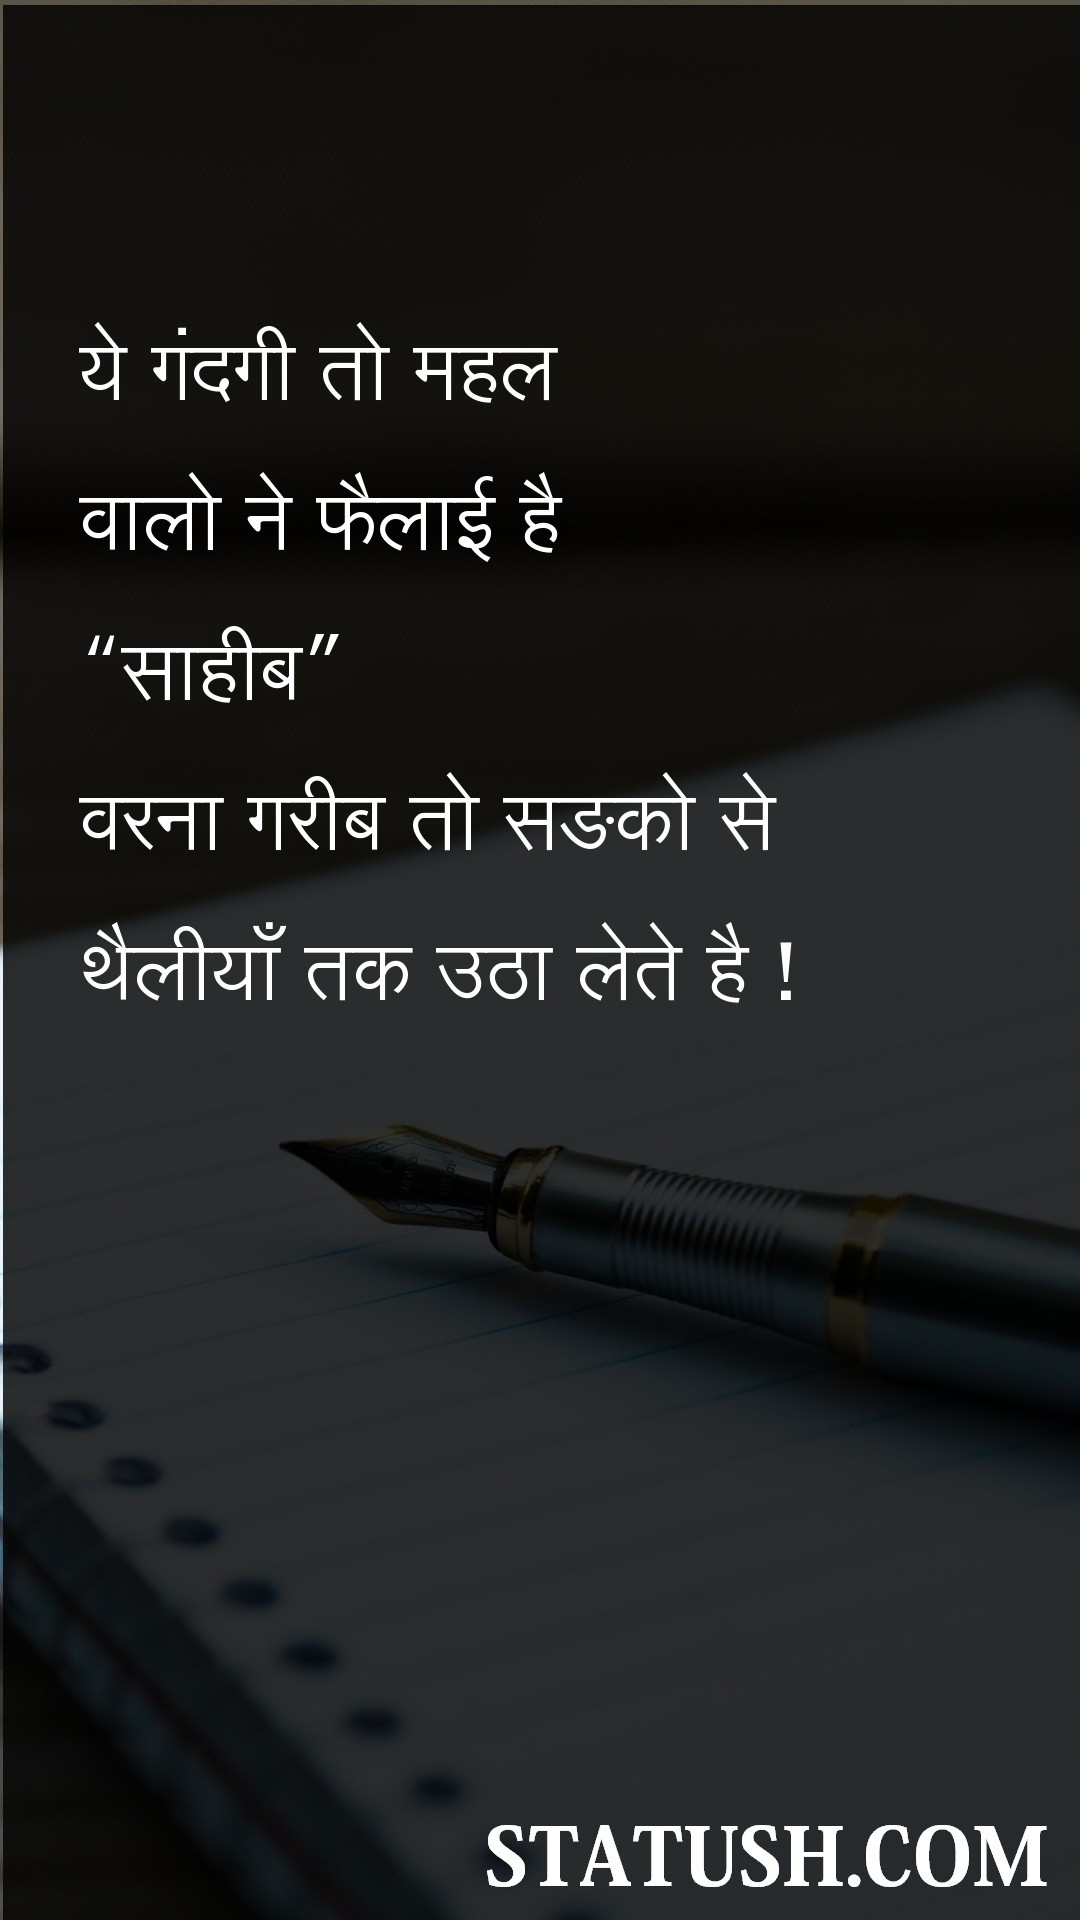 ये गंदगी तो महल
वालो ने फैलाई है
“साहीब”
वरना गरीब तो सङको से
थैलीयाँ तक उठा लेते है !
STATUSH.COM